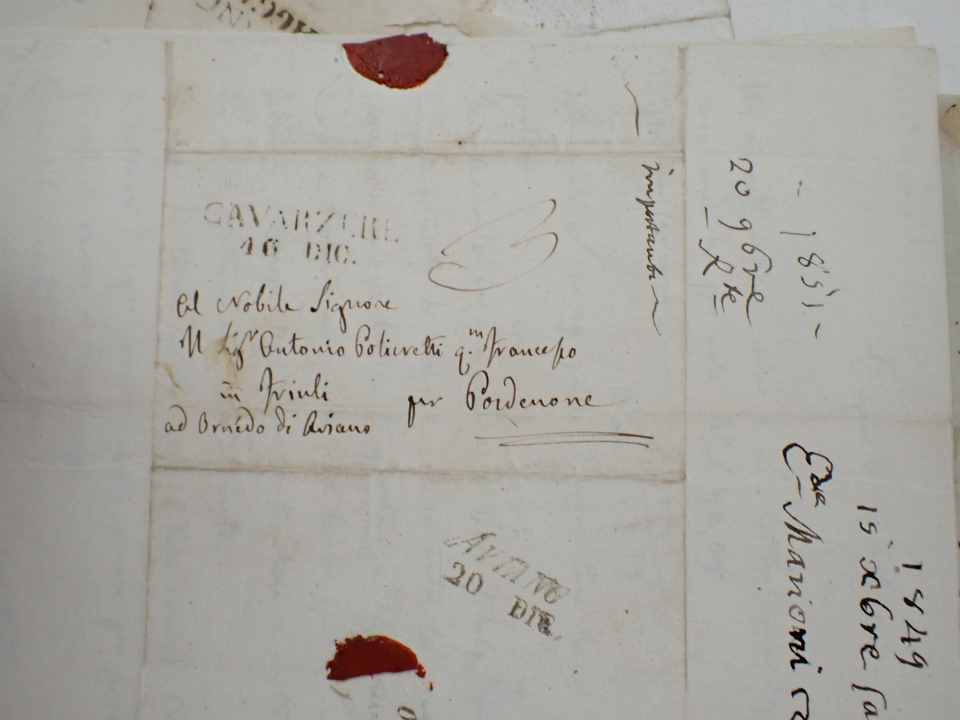 CAVARZERE
16 DIC.
importante
Al Nobile Signore
Il Sigr Antonio Policretti q.m Francesco
in Friuli per Pordenone
ad Ornedo di Aviano
AVIANO
20 DIC.
1851
20 9bre
Rte
1849
15 xbre
Eda Marioni